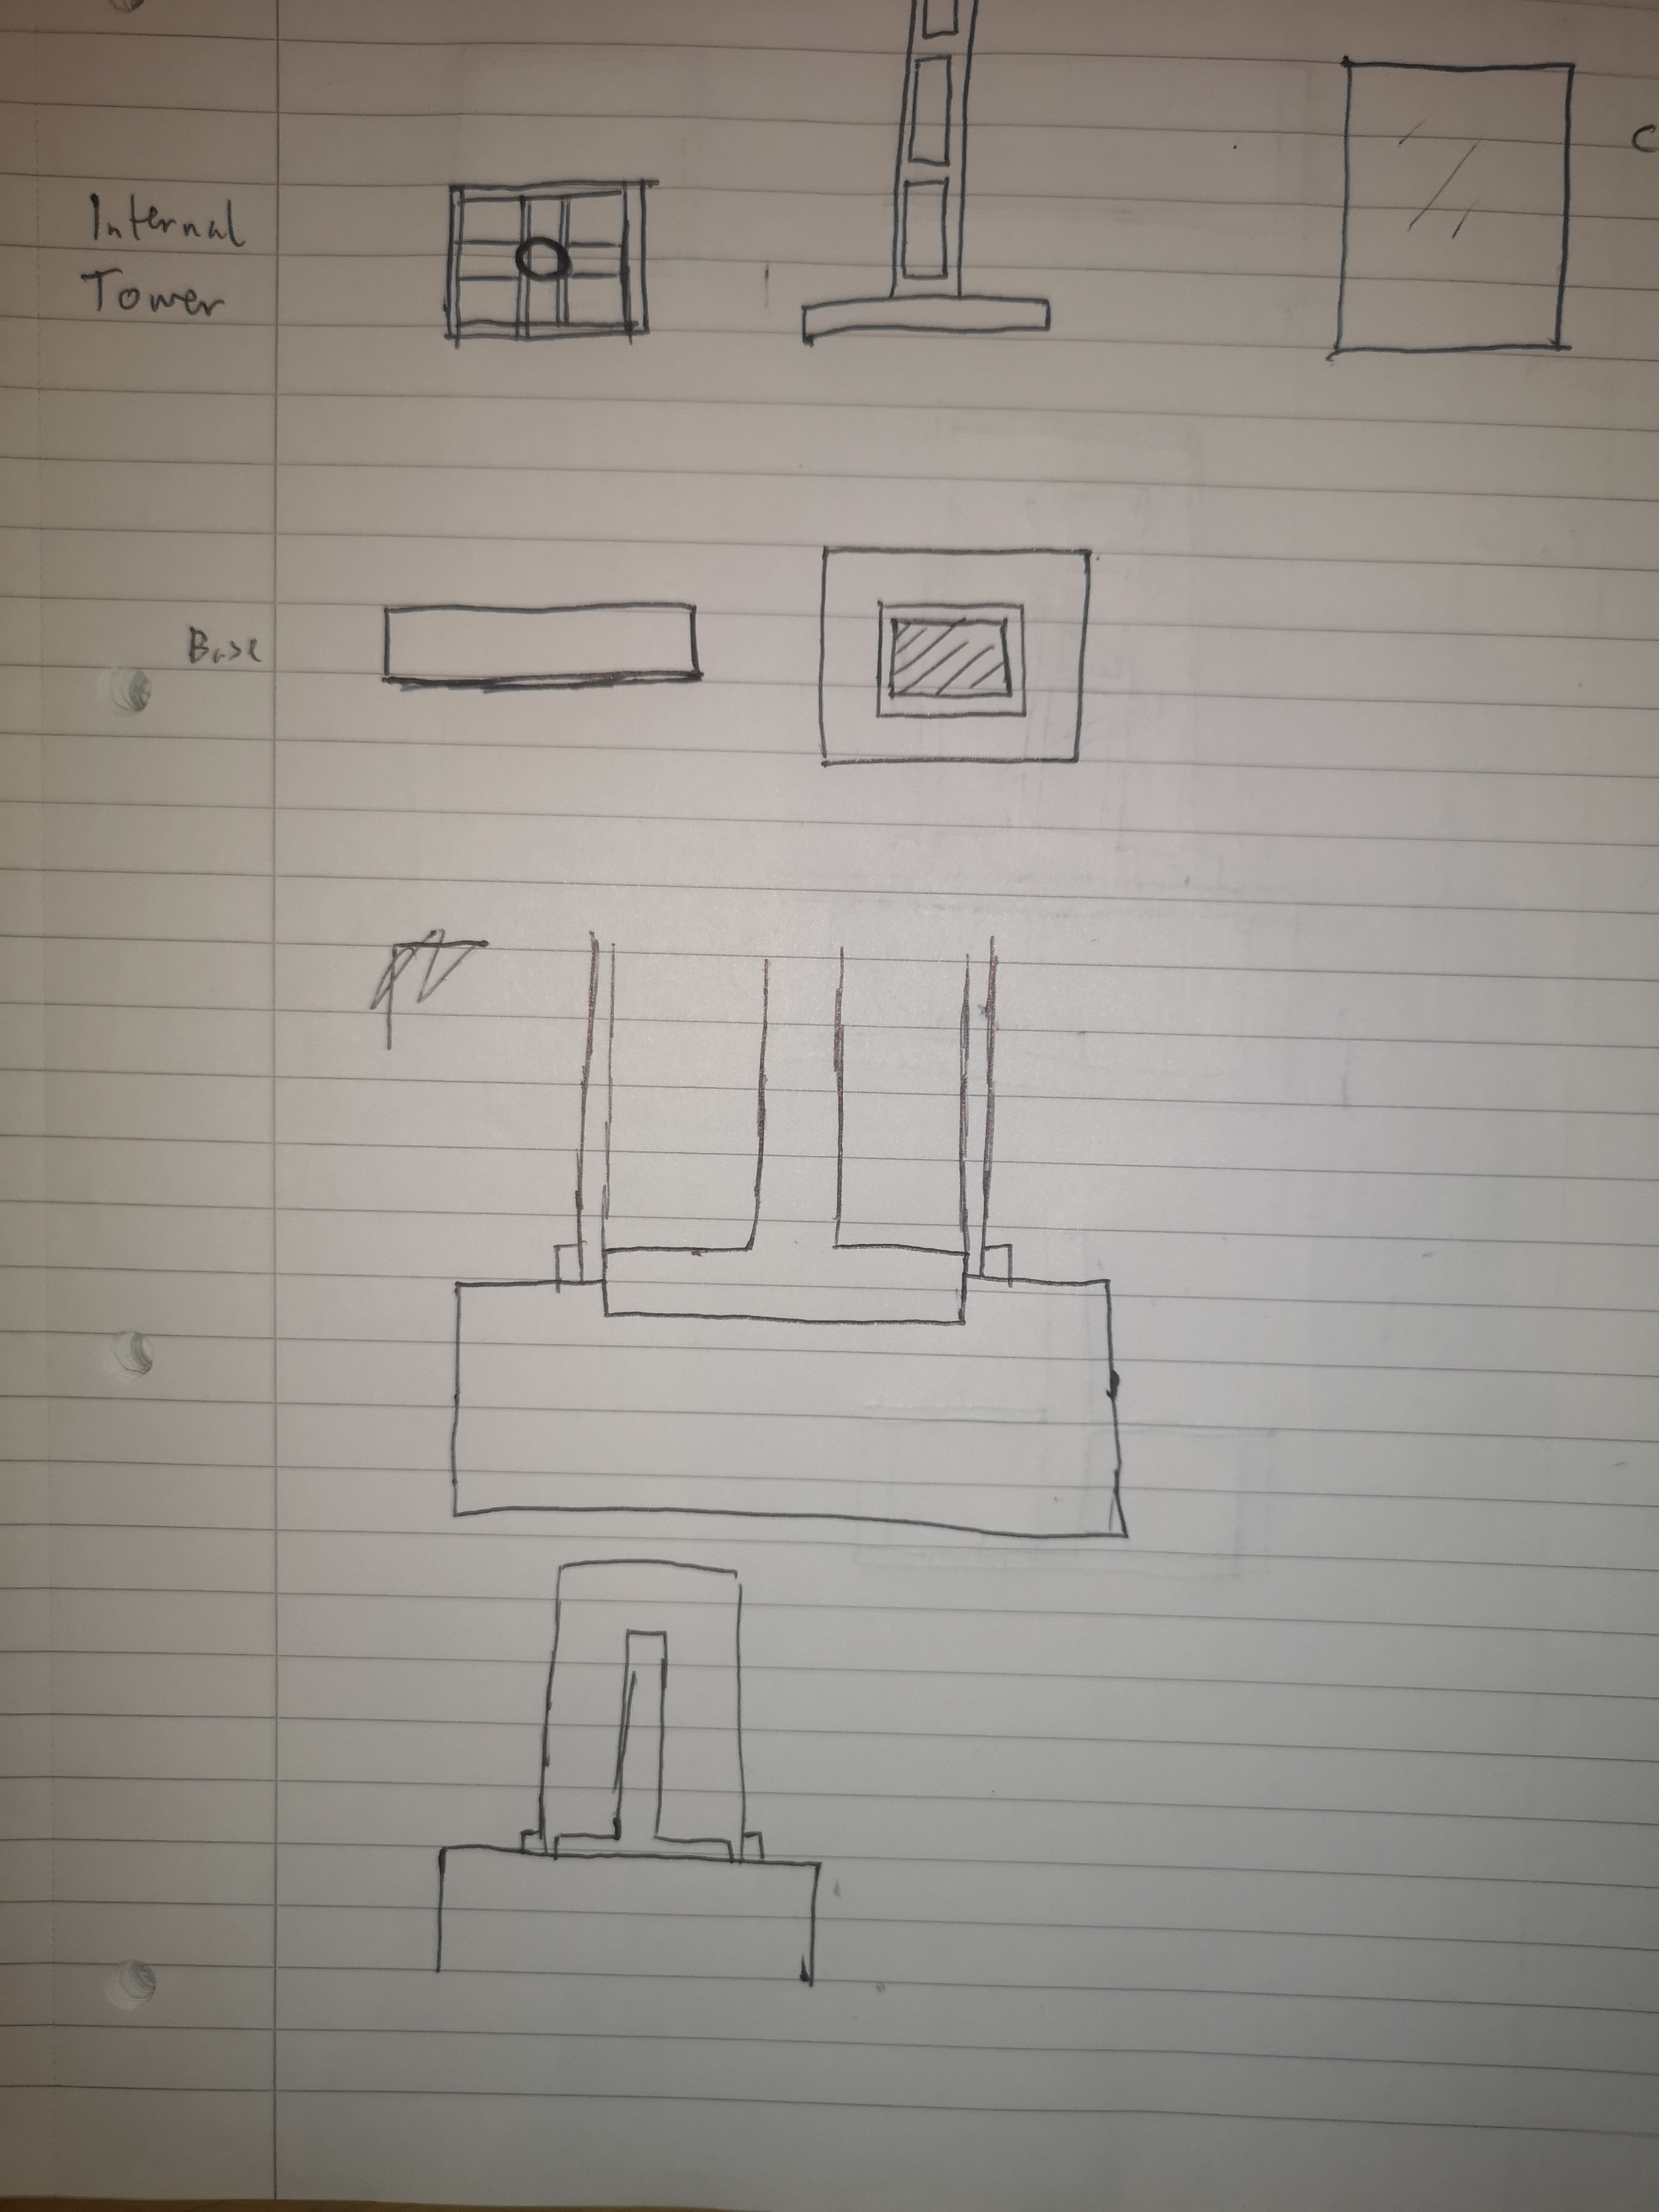 Internal
Tower
C
Base